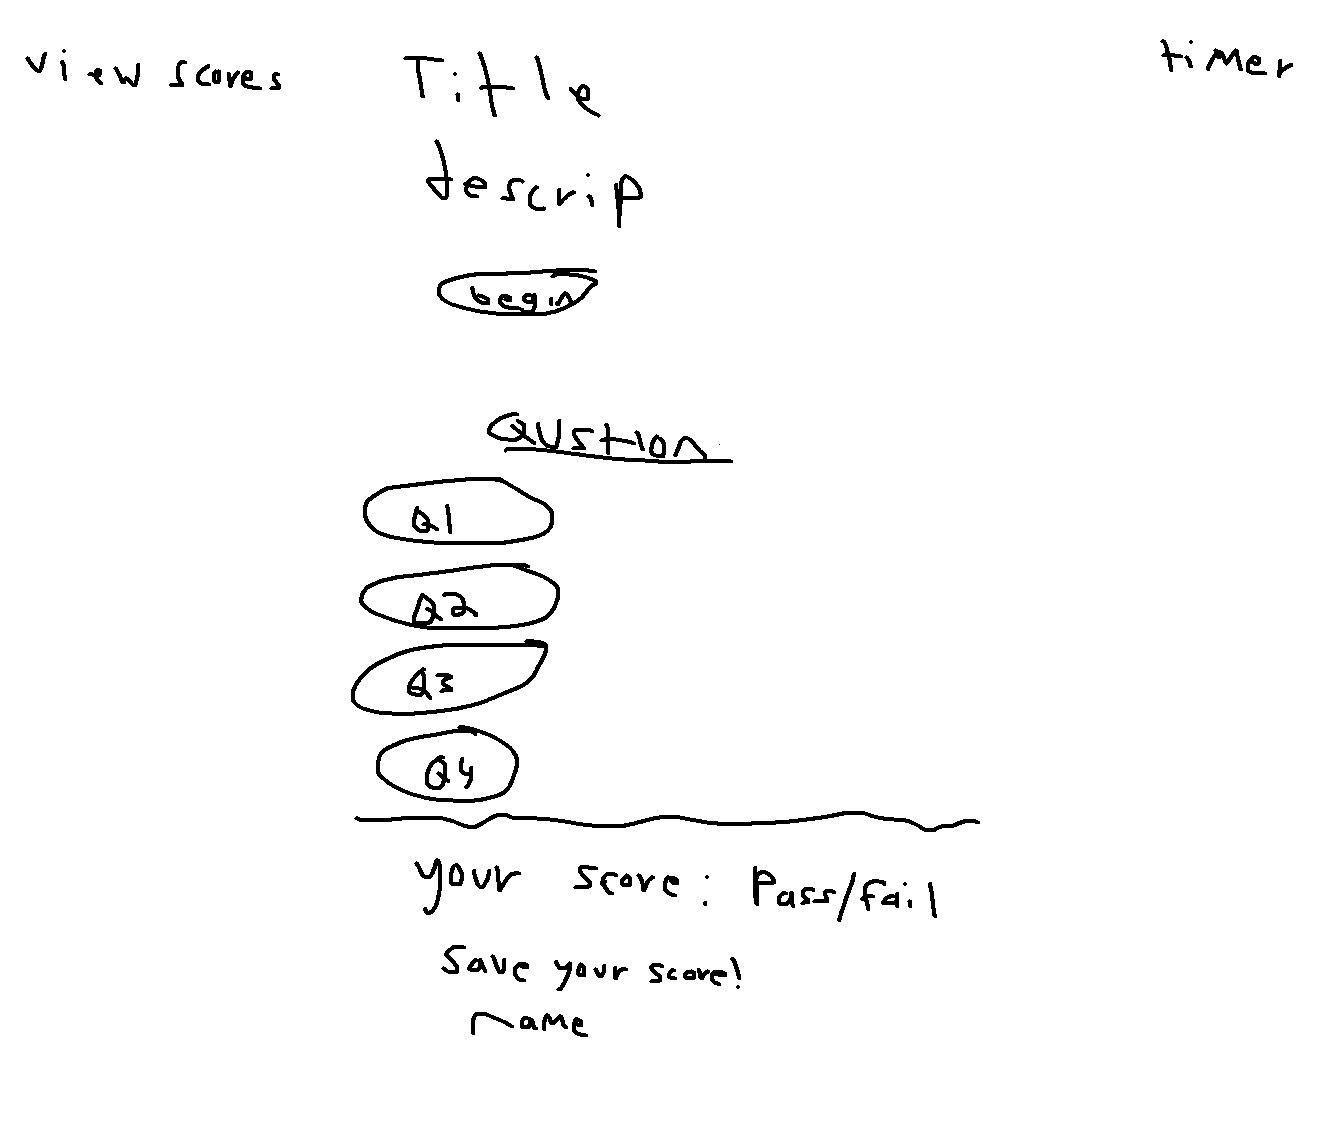 view scores Title timer
descrip
begin
Qustion
Q1
Q2
Q3
Q4
your score: Pass/fail
Save your score!
name